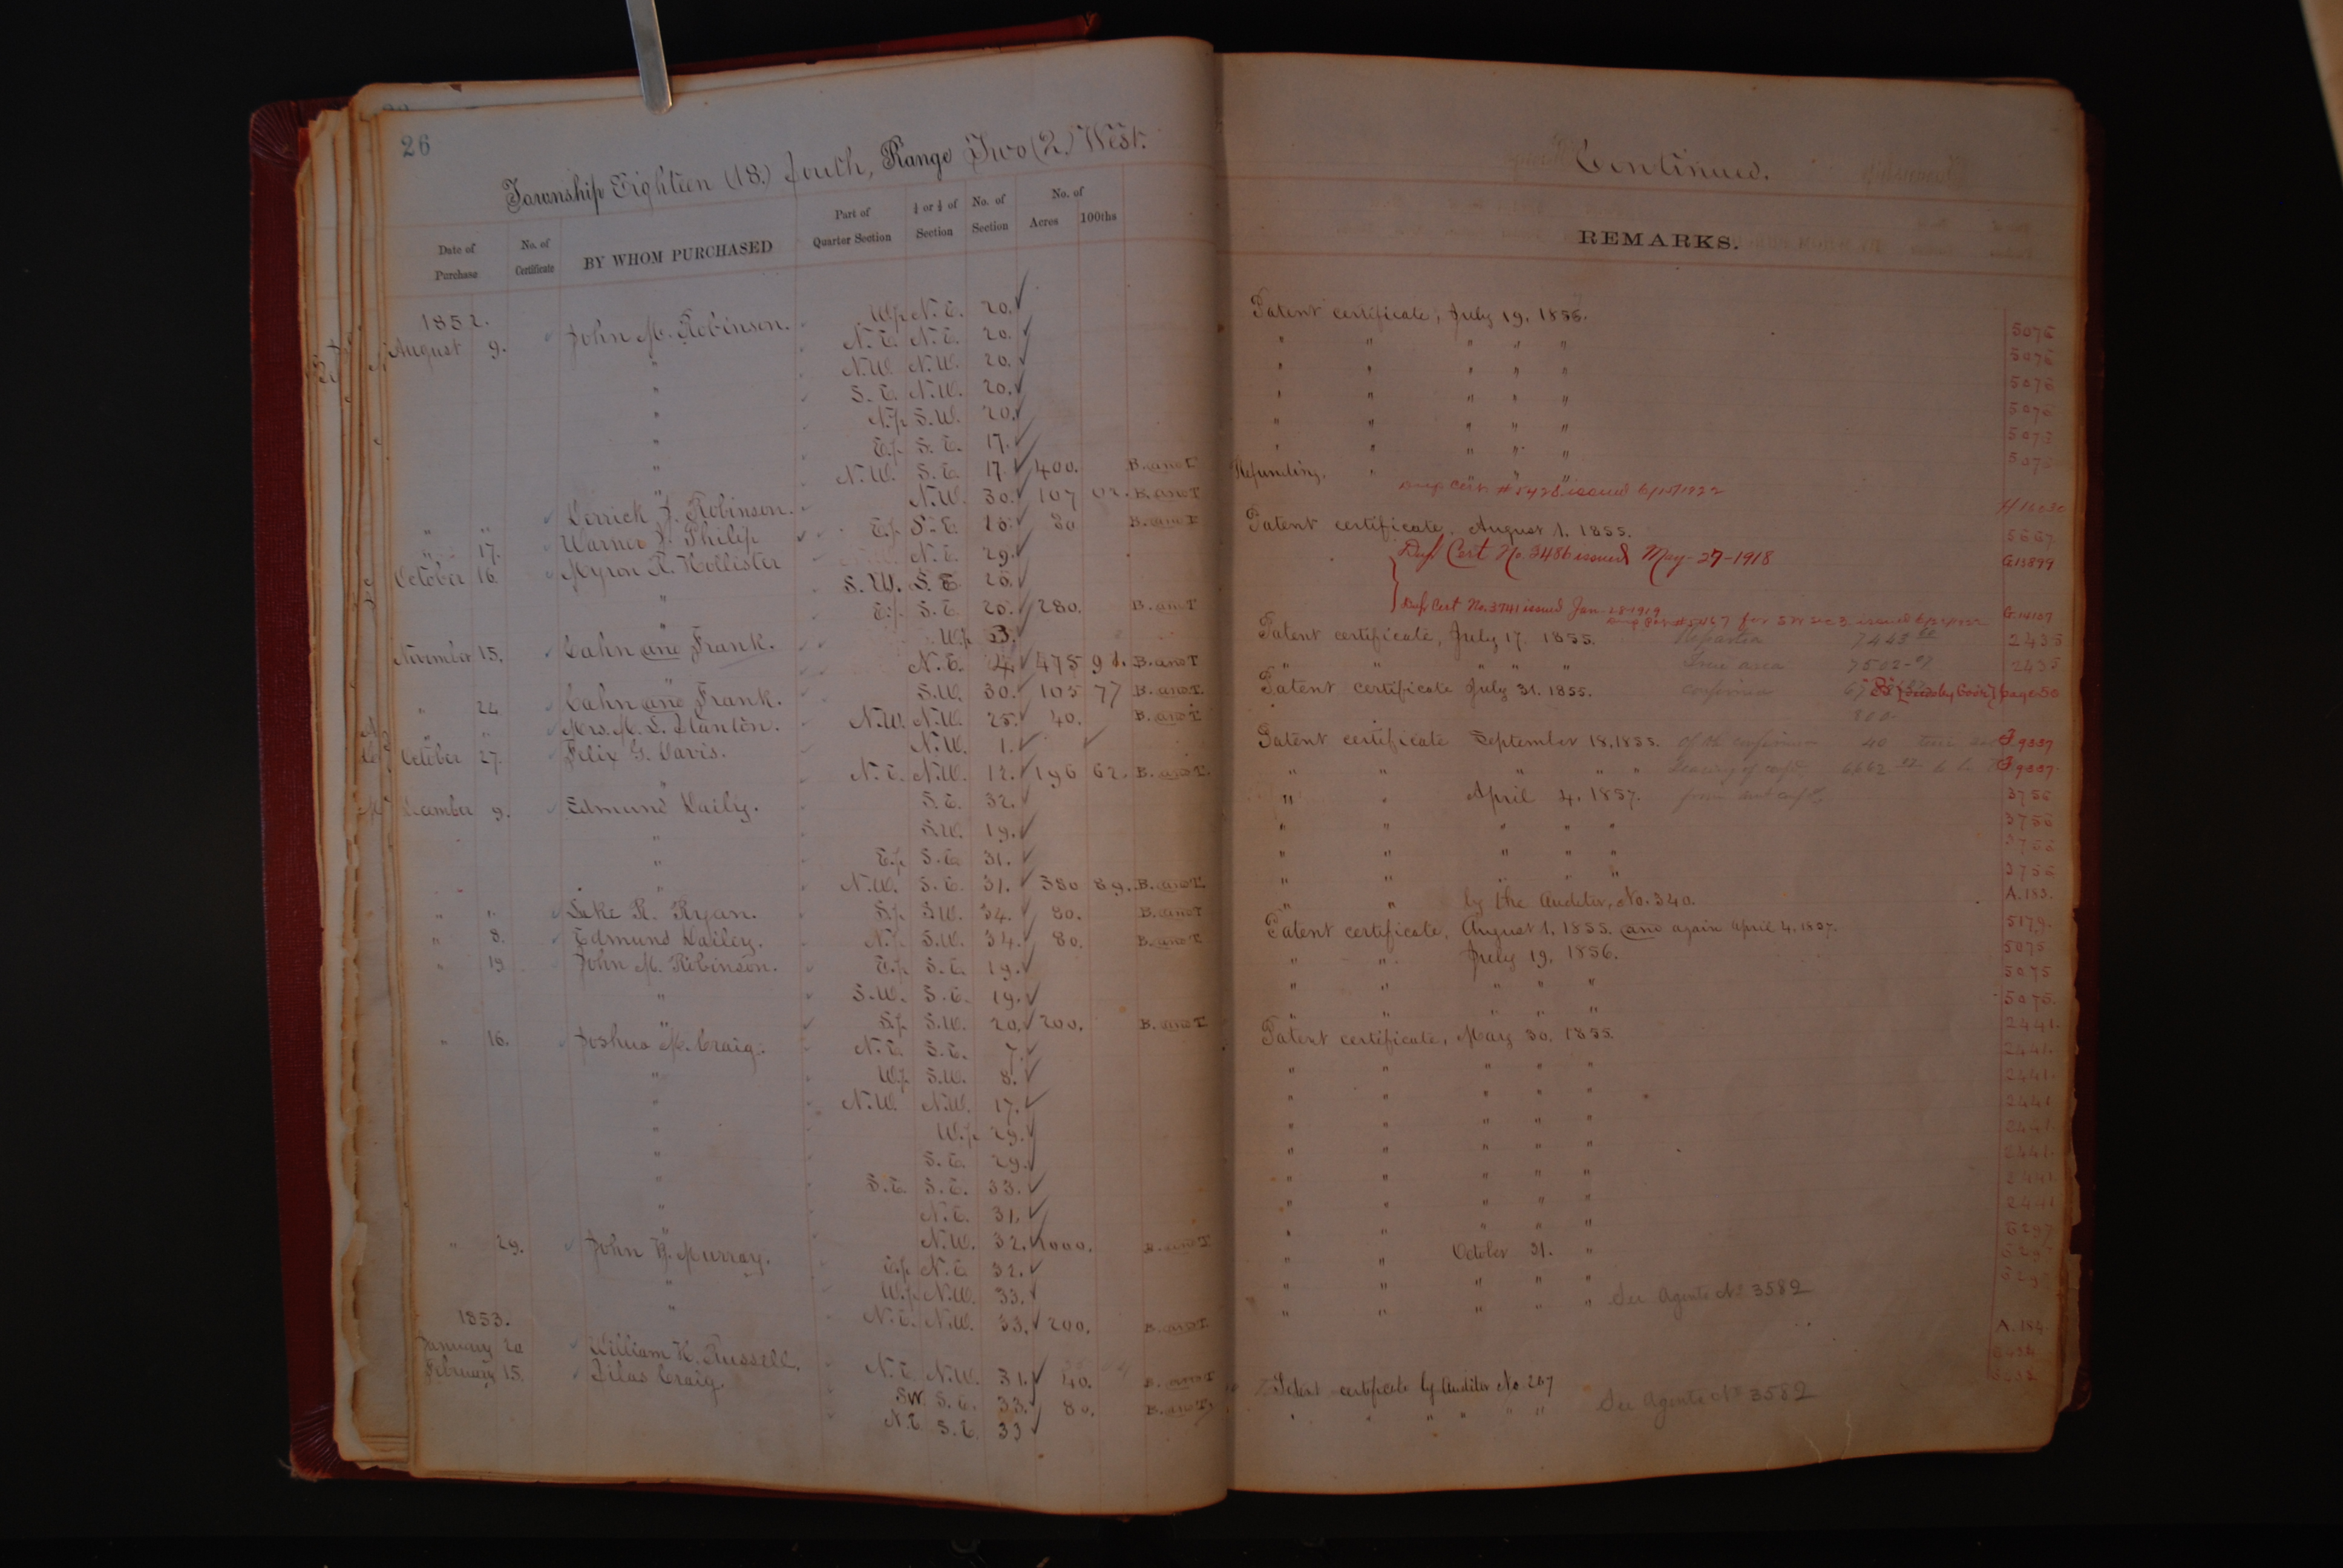 26
Township Eighteen (18.) South, Range Two (2.) West.
Date of Purchase No. of Certificate BY WHOM PURCHASED Part of Quarter Section ½ or ¼ of Section No. of Section No. of Acres 100ths
1852.
August 9. John M. Robinson. W½ N.E. 20.
" N.E. N.E. 20.
" N.W. N.W. 20.
" S.E. N.W. 20.
" N½ S.W. 20.
" E½ S.E. 17.
" N.W. S.E. 17. 400. B. and T
" " Derrick J. Robinson. N.W. 30. 107 02. B. and T
" 17. Warner J. Philip E½ S.E. 18. 80 B. and T
October 16. Myron R. Hollister N.E. 29.
" S.W. S.E. 20.
" E½ S.E. 20. 280. B. and T
November 15. Cahn and Frank. W½ 3.
" N.E. 4. 475 91. B. and T
" 22 Cahn and Frank. S.W. 30. 105 77 B. and T.
" " Mrs. M. L. Stanton. N.W. N.W. 25. 40. B. and T.
October 27. Felix G. Davis. N.W. 1.
" N.E. N.W. 12. 196 62. B. and T.
December 9. Edmund Daily. S.E. 32.
" S.W. 19.
" E½ S.E. 31.
" N.W. S.E. 31. 380 89. B. and T.
" " Luke R. Ryan. S½ S.W. 34. 80. B. and T
" 8. Edmund Dailey. N½ S.W. 34. 80. B. and T
" 19 John M. Robinson. E½ S.E. 19.
" S.W. S.E. 19.
" S½ S.W. 20. 200. B. and T
" 16. Joshua M. Craig. N.E. S.E. 7.
" W½ S.W. 8.
" N.W. N.W. 17.
" W½ 29.
" S.E. 29.
" S.E. S.E. 33.
" N.E. 31.
" N.W. 32. 1000. B. and T
" 29. John H. Murray. E½ N.E. 32.
" W½ N.W. 33.
" N.E. N.W. 33. 200. B. and T
1853.
January 20 William H. Russell. N.E. N.W. 31. 40. B. and T
February 15. Silas Craig. SW. S.E. 33. 80. B. and T.
N.E S.E. 33
Continued.
REMARKS.
Patent certificate, July 19, 1856. 5076
" " " " " 5076
" " " " " 5076
" " " " " 5076
" " " " " 5075
" " " " "
Refunding.
Dup Cert # 5428 issued 6/15/1922
Patent certificate, August 1, 1855. 5667
Dup Cert No. 3486 issued May-27-1918 G13899
Dup Cert No. 3741 issued Jan-28-1919 G.14107
Patent certificate, July 17. 1855. 2435
" " " " " True area 7502-07 2435
Patent certificate July 31. 1855. page 50
Patent certificate September 18, 1855. 9337
" " " " " 9337
" " April 4, 1857. 3756
" " " " " 3756
" " " " " 3756
" " " " " 3756
" " by the Auditor, No. 340. A.183.
Patent certificate, August 1, 1855. and again April 4, 1857. 5179.
" " July 19, 1856. 5075
" " " " " 5075
" " " " " 5075.
Patent certificate, May 30, 1855. 2441.
" " " " " 2441.
" " " " " 2441.
" " " " " 2441
" " " " " 2441.
" " " " " 2441.
" " " " " 2441
" " " " " 2441
" " October 31. " 6297
" " " " "
" " " " " See Agents No 3582
A.184
Patent certificate by Auditor No. 267
" " " " " " See Agents No 3582